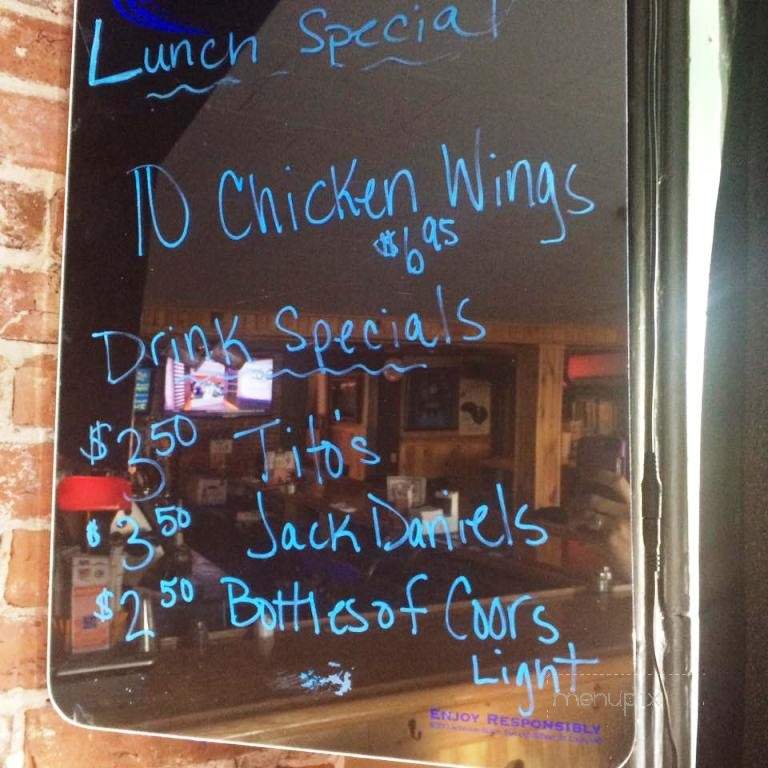 Lunch Special
10 Chicken Wings
$6.95
Drink Specials
$3.50 Tito's
$3.50 Jack Daniels
$2.50 Bottles of Coors
Light
menupix
ENJOY RESPONSIBLY